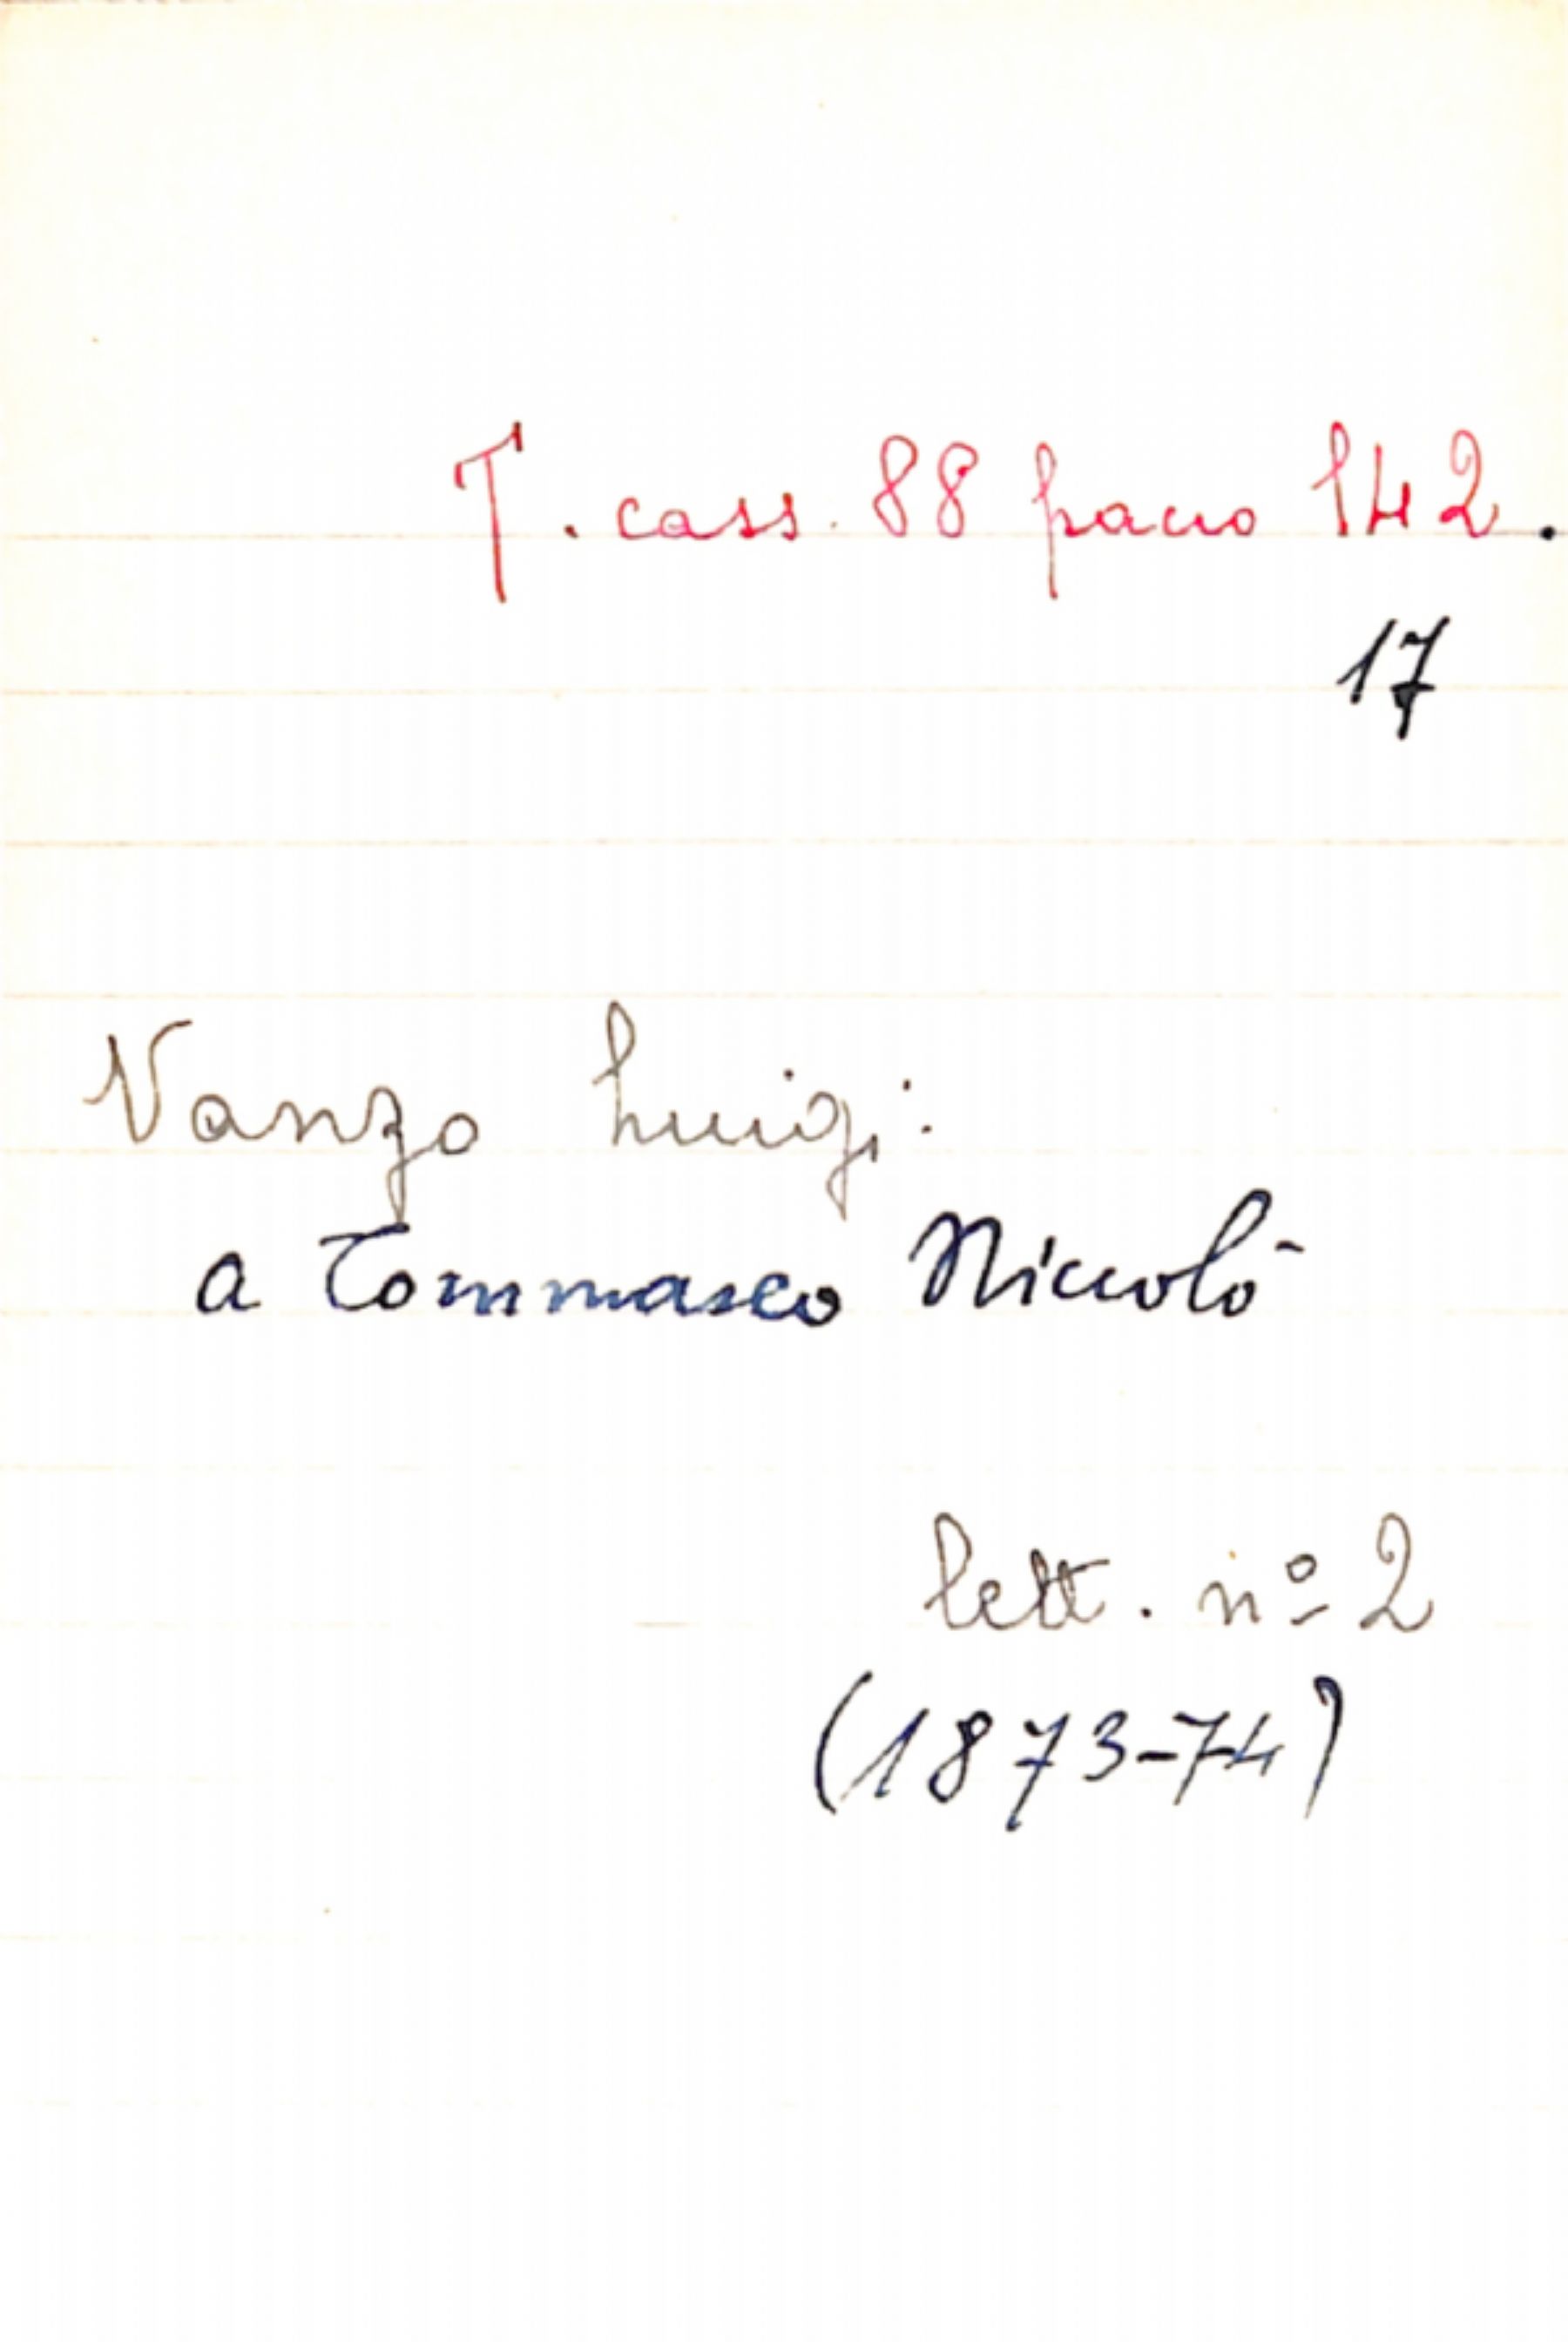 T. cass. 88 pacco 142.
17
Vanzo Luigi:
a Tommaseo Niccolò
lett. nº 2
(1873-74)